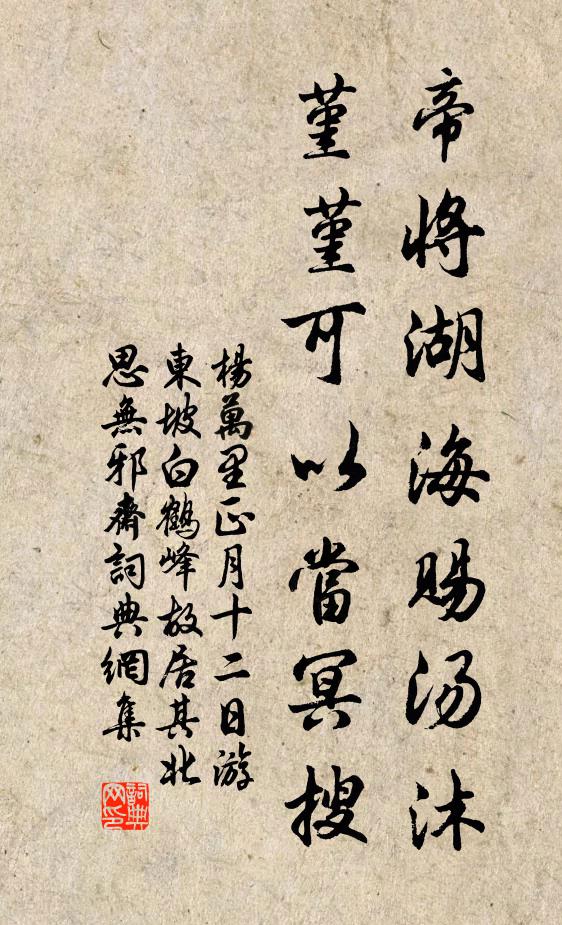 帝將湖海賜湯沐
堇堇可以當冥搜
楊萬里正月十二日游
東坡白鶴峰故居其北
思無邪齋詞典網集
詞典網印